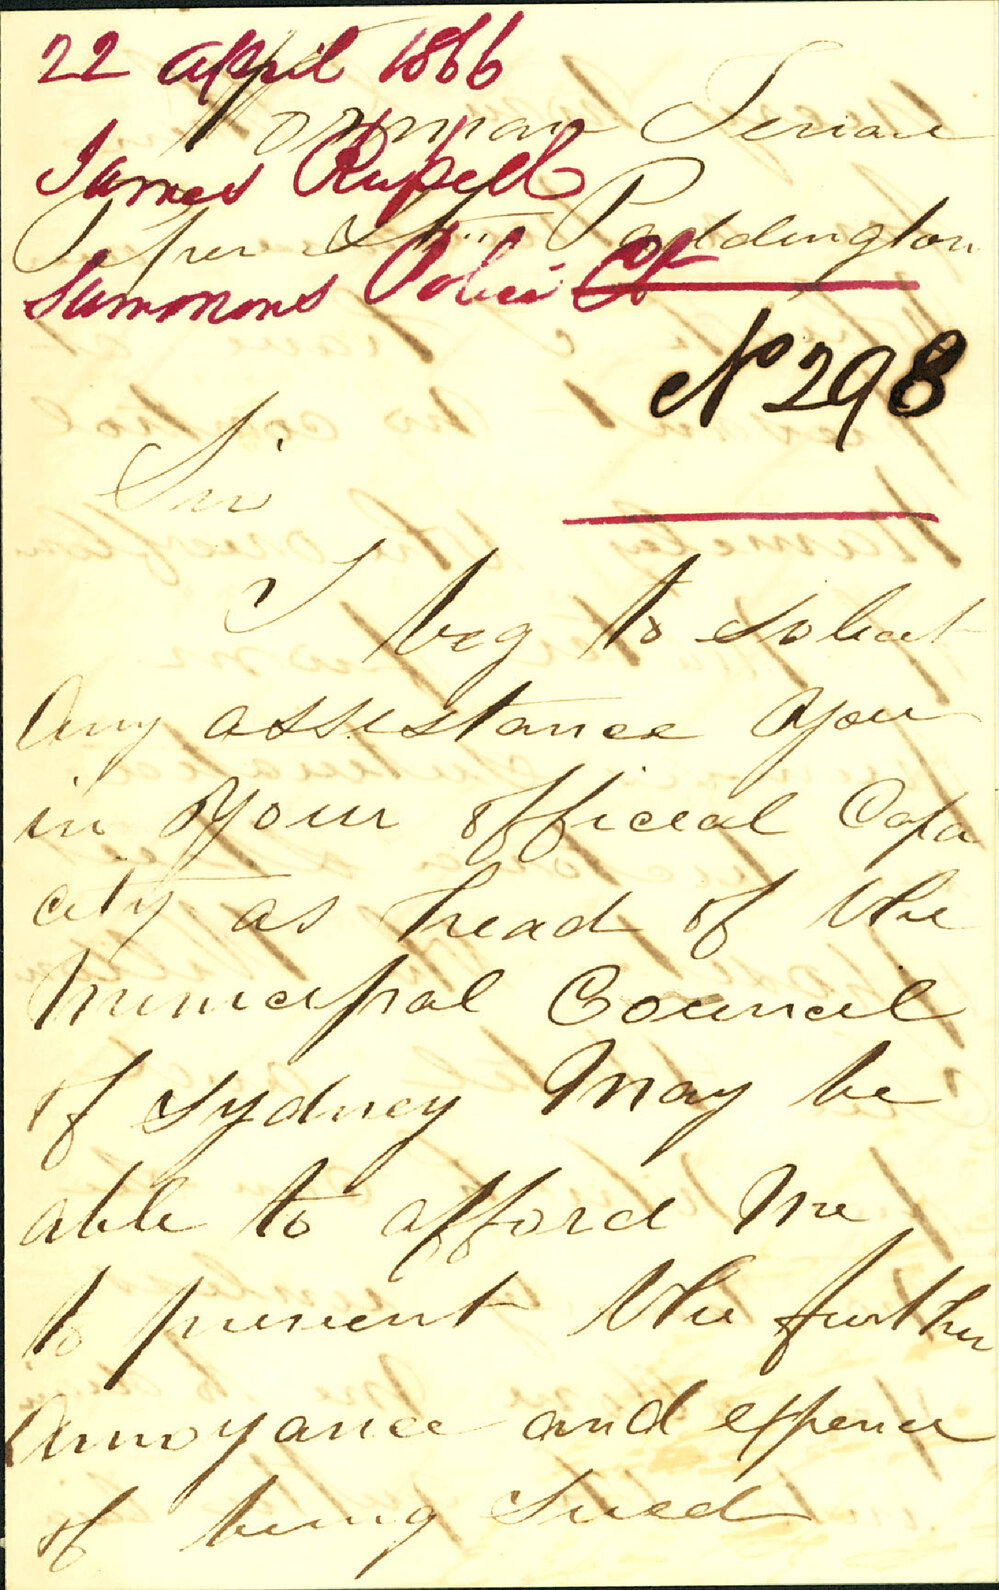 22 April 1866
Norman Terrace
James Russell
Upper Stn Paddington
Summons Police Ct
No 298
Sir
I beg to solicit
any assistance you
in your official Capa
city as head of the
Municipal Council
of Sydney may be
able to afford me
to prevent the further
annoyance and expence
of being sued